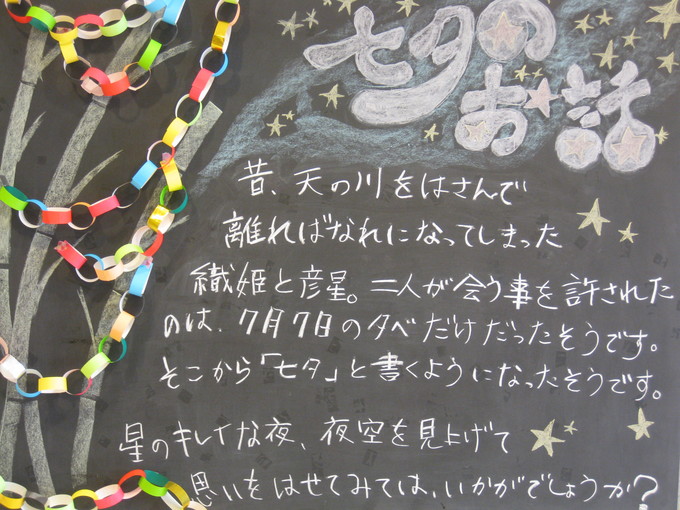 七夕の
お話
昔、天の川をはさんで
離ればなれになってしまった
織姫と彦星。二人が会う事を許された
のは、7月7日の夕べだけだったそうです。
そこから「七夕」と書くようになったそうです。
星のキレイな夜、夜空を見上げて
思いをはせてみては、いかがでしょうか?